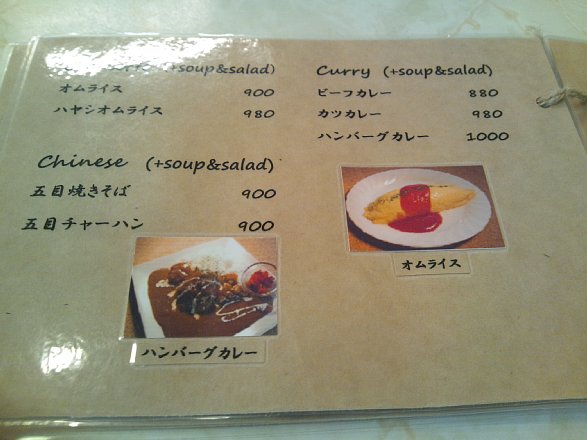 (+soup&salad)
オムライス 900
ハヤシオムライス 980
Chinese (+soup&salad)
五目焼きそば 900
五目チャーハン 900
ハンバーグカレー
Curry (+soup&salad)
ビーフカレー 880
カツカレー 980
ハンバーグカレー 1000
オムライス